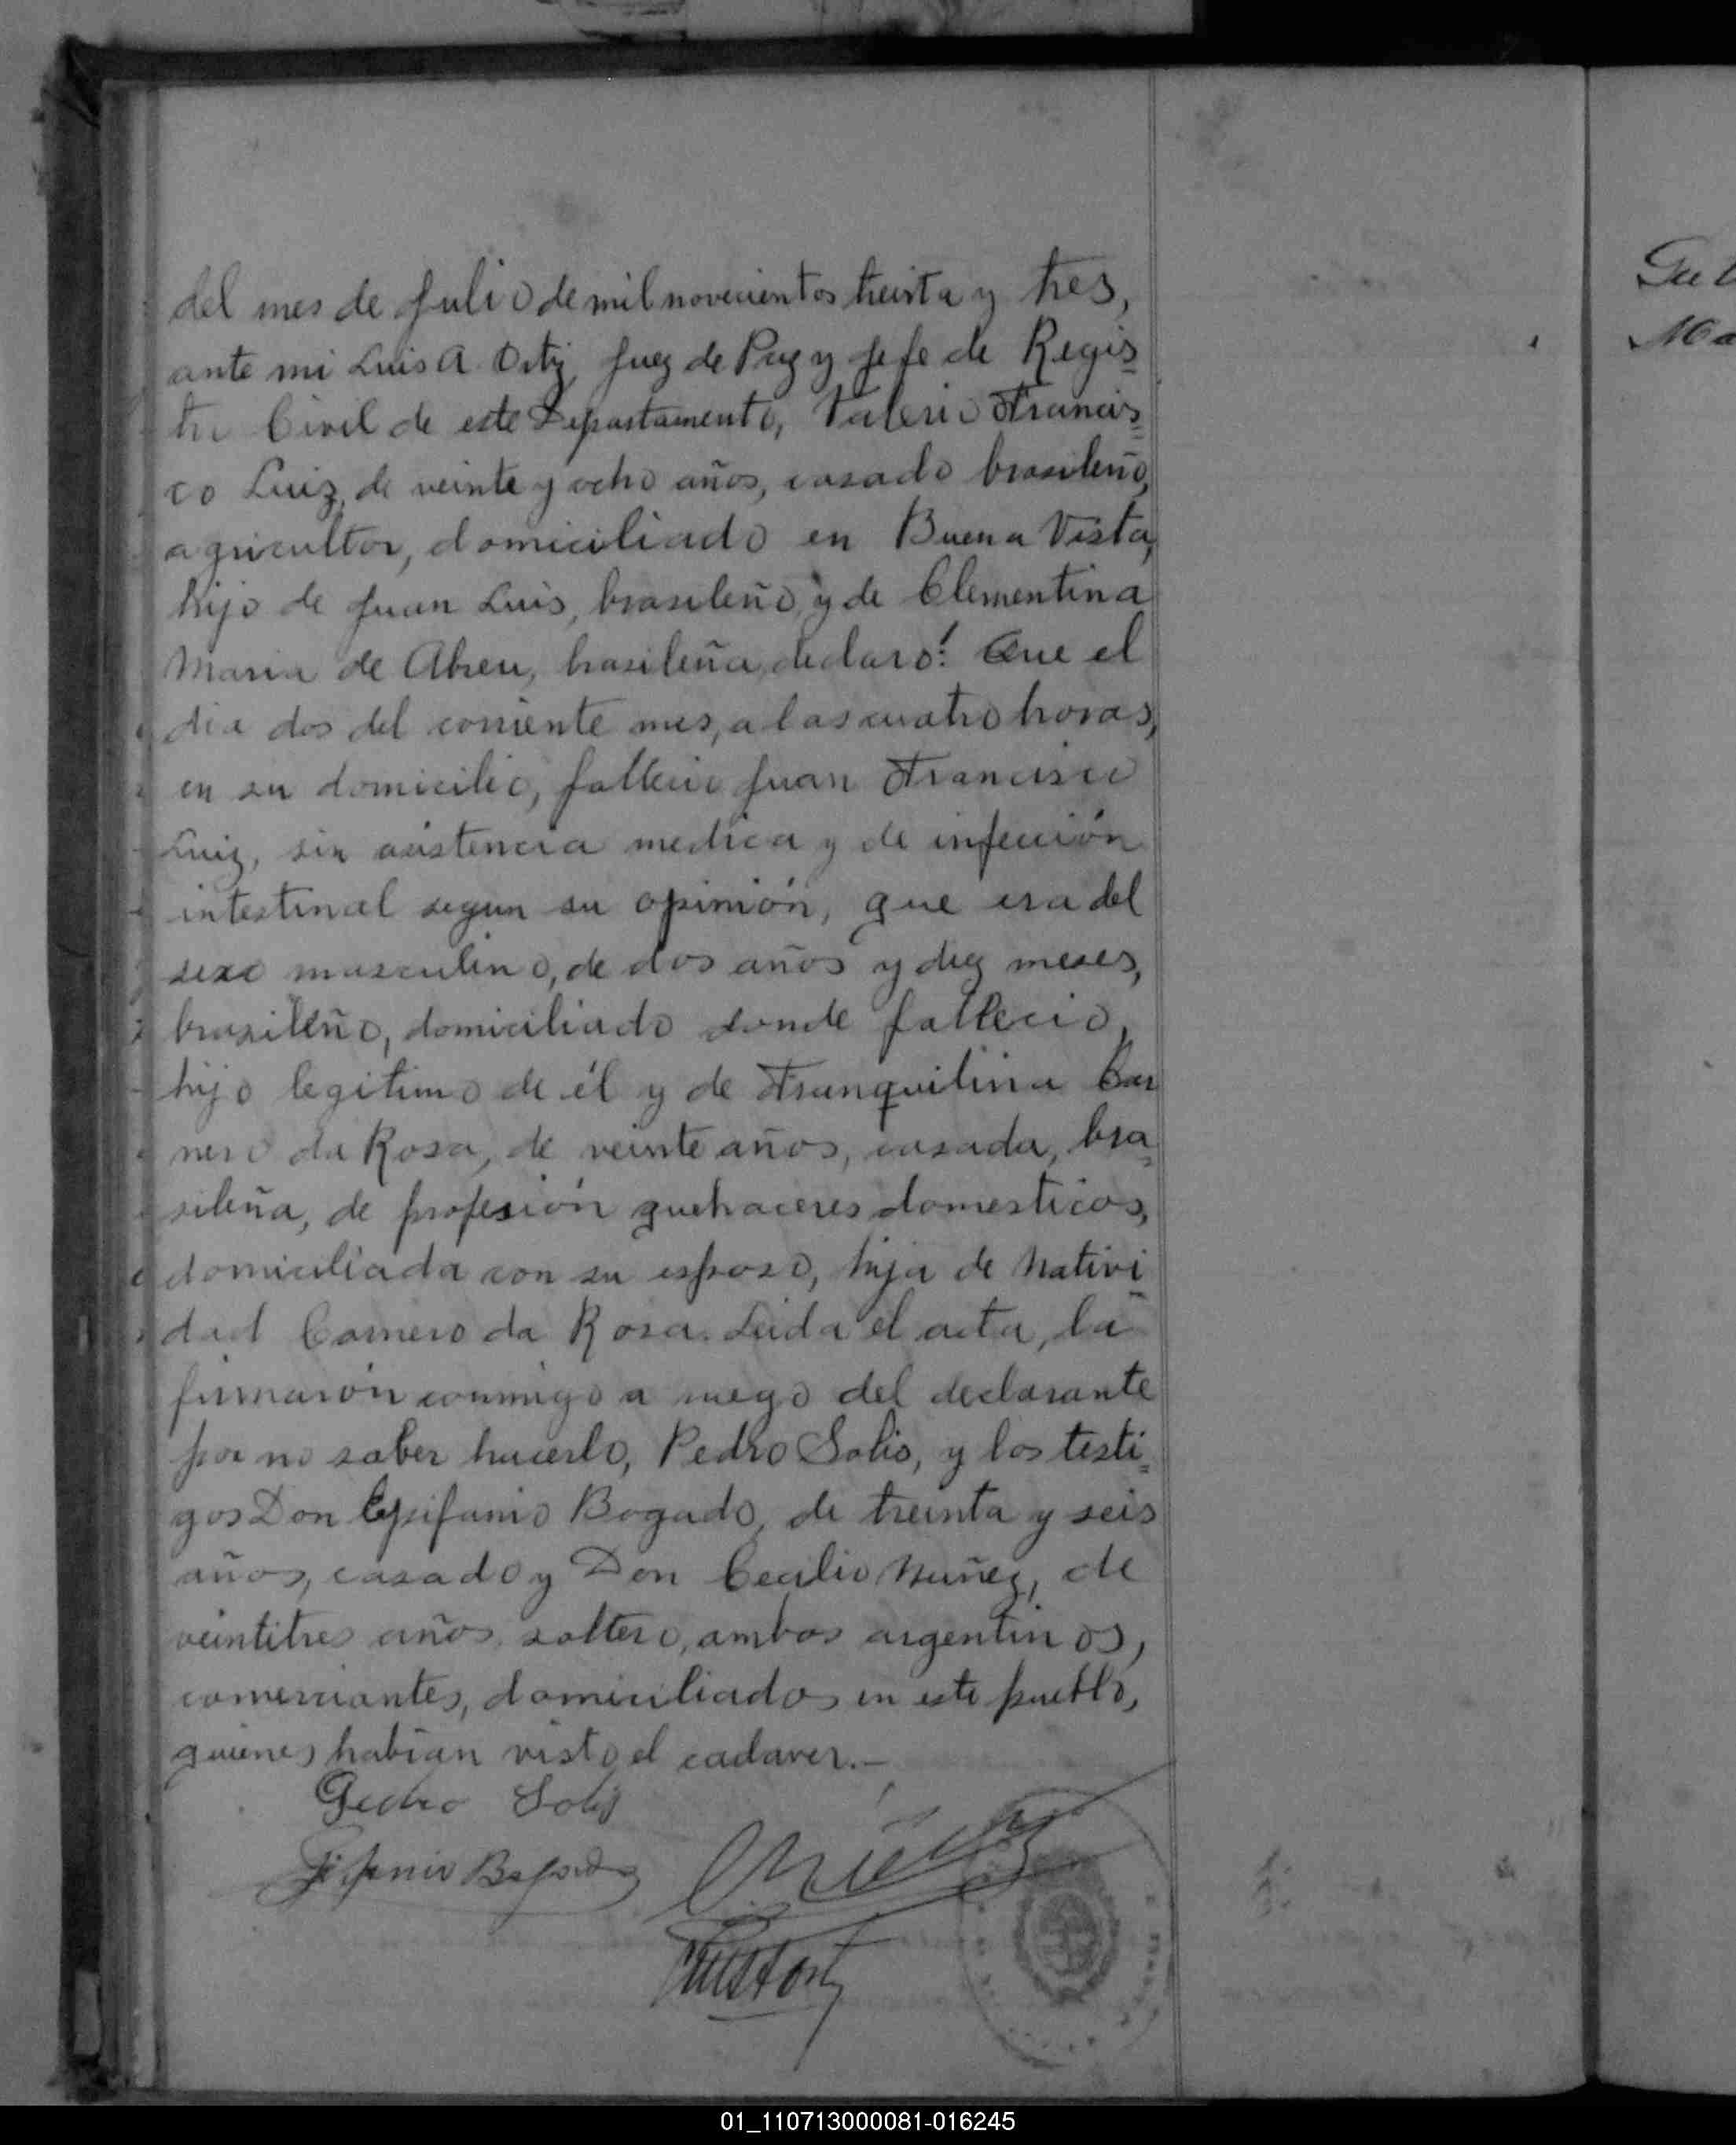 del mes de Julio de mil novecientos treinta y tres,
ante mi Luis A Ortiz, Juez de Paz y Jefe de Regis
tro Civil de este Departamento, Valerio Francis
co Luiz, de veinte y ocho años, casado brasileño,
agricultor, domiciliado en Buena Vista,
hijo de Juan Luis, brasileño y de Clementina
Maria de Abreu, brasileña, declaró: Que el
dia dos del corriente mes, a las cuatro horas,
en su domicilio, fallecio Juan Francisco
Luiz, sin asistencia medica y de infección
intestinal segun su opinión, que era del
sexo masculino, de dos años y diez meses,
brasileño, domiciliado donde fallecio,
hijo legitimo de él y de Tranquilina Car
nero da Rosa, de veinte años, casada, bra
sileña, de profesión quehaceres domesticos,
domiciliada con su esposo, hija de Nativi
dad Carnero da Rosa. Leida el acta, la
firmarón conmigo a ruego del declarante
por no saber hacerlo, Pedro Solis, y los testi
gos Don Epifanio Bogado, de treinta y seis
años, casado y Don Cecilio Nuñez, de
veintitres años, soltero, ambos argentinos,
comerciantes, domiciliados en este pueblo,
quienes habian visto el cadaver.—
Pedro Solis
Epifanio Bogado
Gut
Ma
01_110713000081-016245